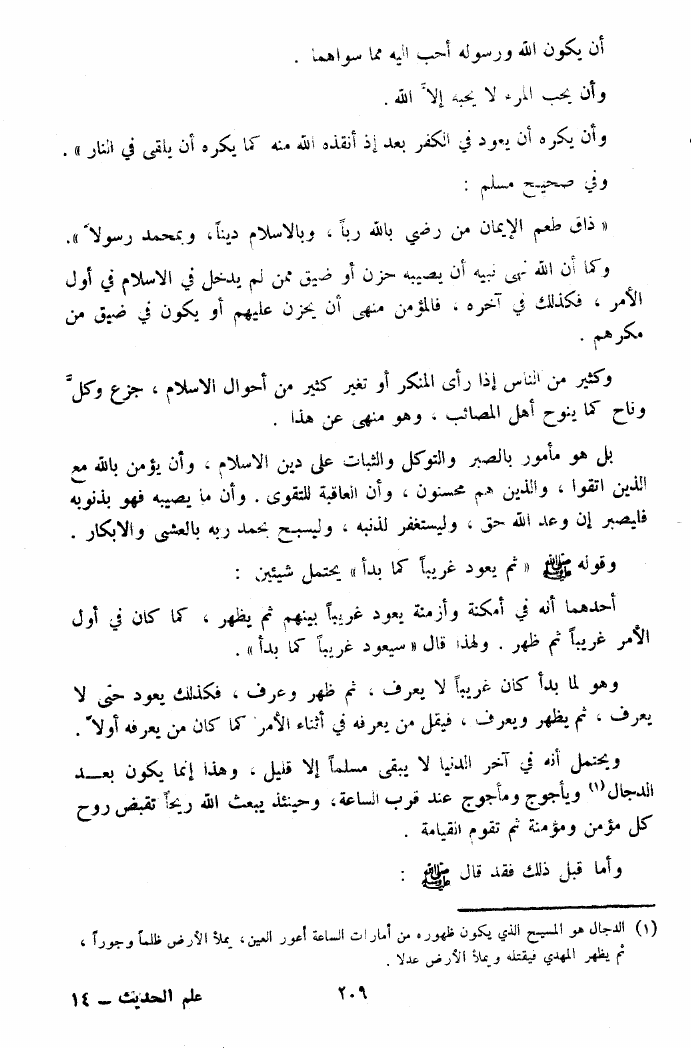 أن يكون الله ورسوله أحب اليه مما سواهما .
وأن يحب المرء لا يحبه إلاَّ الله .
وأن يكره أن يعود في الكفر بعد إذ أنقذه الله منه كما يكره أن يلقى في النار » .
وفي صحيح مسلم :
« ذاق طعم الإيمان من رضي بالله رباً ، وبالاسلام ديناً، وبمحمد رسولاً ».
وكما أن الله نهى نبيه أن يصيبه حزن أو ضيق ممن لم يدخل في الاسلام في أول
الأمر ، فكذلك في آخره ، فالمؤمن منهى أن يحزن عليهم أو يكون في ضيق من
مكرهم .
وكثير من الناس إذا رأى المنكر أو تغير كثير من أحوال الاسلام ، جزع وكلَّ
وناح كما ينوح أهل المصائب ، وهو منهى عن هذا .
بل هو مأمور بالصبر والتوكل والثبات على دين الاسلام ، وأن يؤمن بالله مع
الذين اتقوا ، والذين هم محسنون ، وأن العاقبة للتقوى . وأن ما يصيبه فهو بذنوبه
فليصبر إن وعد الله حق ، وليستغفر لذنبه ، وليسبح بحمد ربه بالعشى والابكار .
وقوله ﷺ « ثم يعود غريباً كما بدأ » يحتمل شيئين :
أحدهما أنه في أمكنة وأزمنة يعود غريباً بينهم ثم يظهر ، كما كان في أول
الأمر غريباً ثم ظهر . ولهذا قال « سيعود غريباً كما بدأ » .
وهو لما بدأ كان غريباً لا يعرف ، ثم ظهر وعرف ، فكذلك يعود حتى لا
يعرف ، ثم يظهر ويعرف ، فيقل من يعرفه في أثناء الأمر كما كان من يعرفه أولاً .
ويحتمل أنه في آخر الدنيا لا يبقى مسلماً إلا قليل ، وهذا إنما يكون بعــد
الدجال (١) ويأجوج ومأجوج عند قرب الساعة، وحينئذ يبعث الله ريحاً تقبض روح
كل مؤمن ومؤمنة ثم تقوم القيامة .
وأما قبل ذلك فقد قال ﷺ :
(١) الدجال هو المسيح الذي يكون ظهوره من أمارات الساعة أعور العين، يملأ الأرض ظلماً وجوراً ،
ثم يظهر المهدي فيقتله ويملأ الأرض عدلا .
٢٠٩
علم الحديث – ١٤